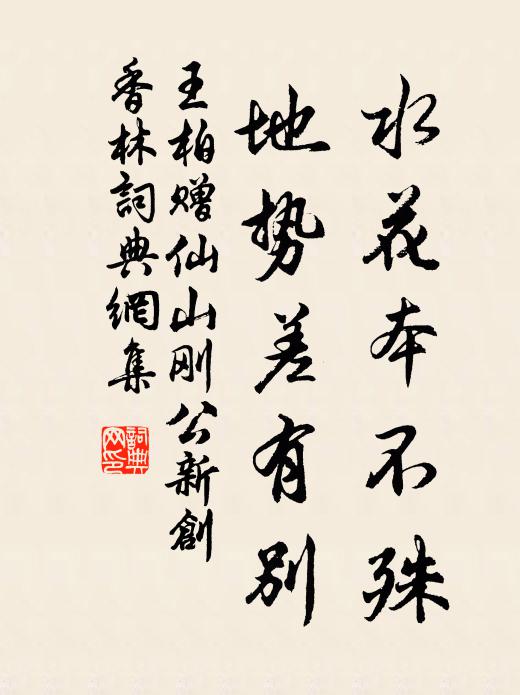 水花本不殊
地势差有别
王柏赠仙山刚公新創
香林詞典網集
詞典网印